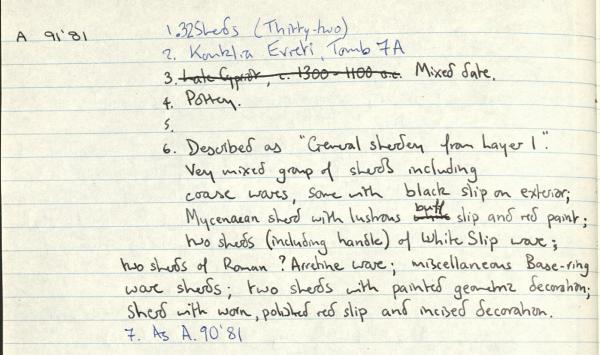 A 91'81
1. 32 Sherds (Thirty-two)
2. Kouklia Evreti, Tomb 7A
3. Late Cypriot, c. 1300-1100 B.C. Mixed date.
4. Pottery.
5.
6. Described as "General sherdery from Layer 1".
Very mixed group of sherds including
coarse wares, some with black slip on exterior;
Mycenaean sherd with lustrous buff slip and red paint;
two sherds (including handle) of White Slip ware;
two sherds of Roman ? Arretine ware; miscellaneous Base-ring
ware sherds; two sherds with painted geometric decoration;
sherd with worn, polished red slip and incised decoration.
7. As A.90'81